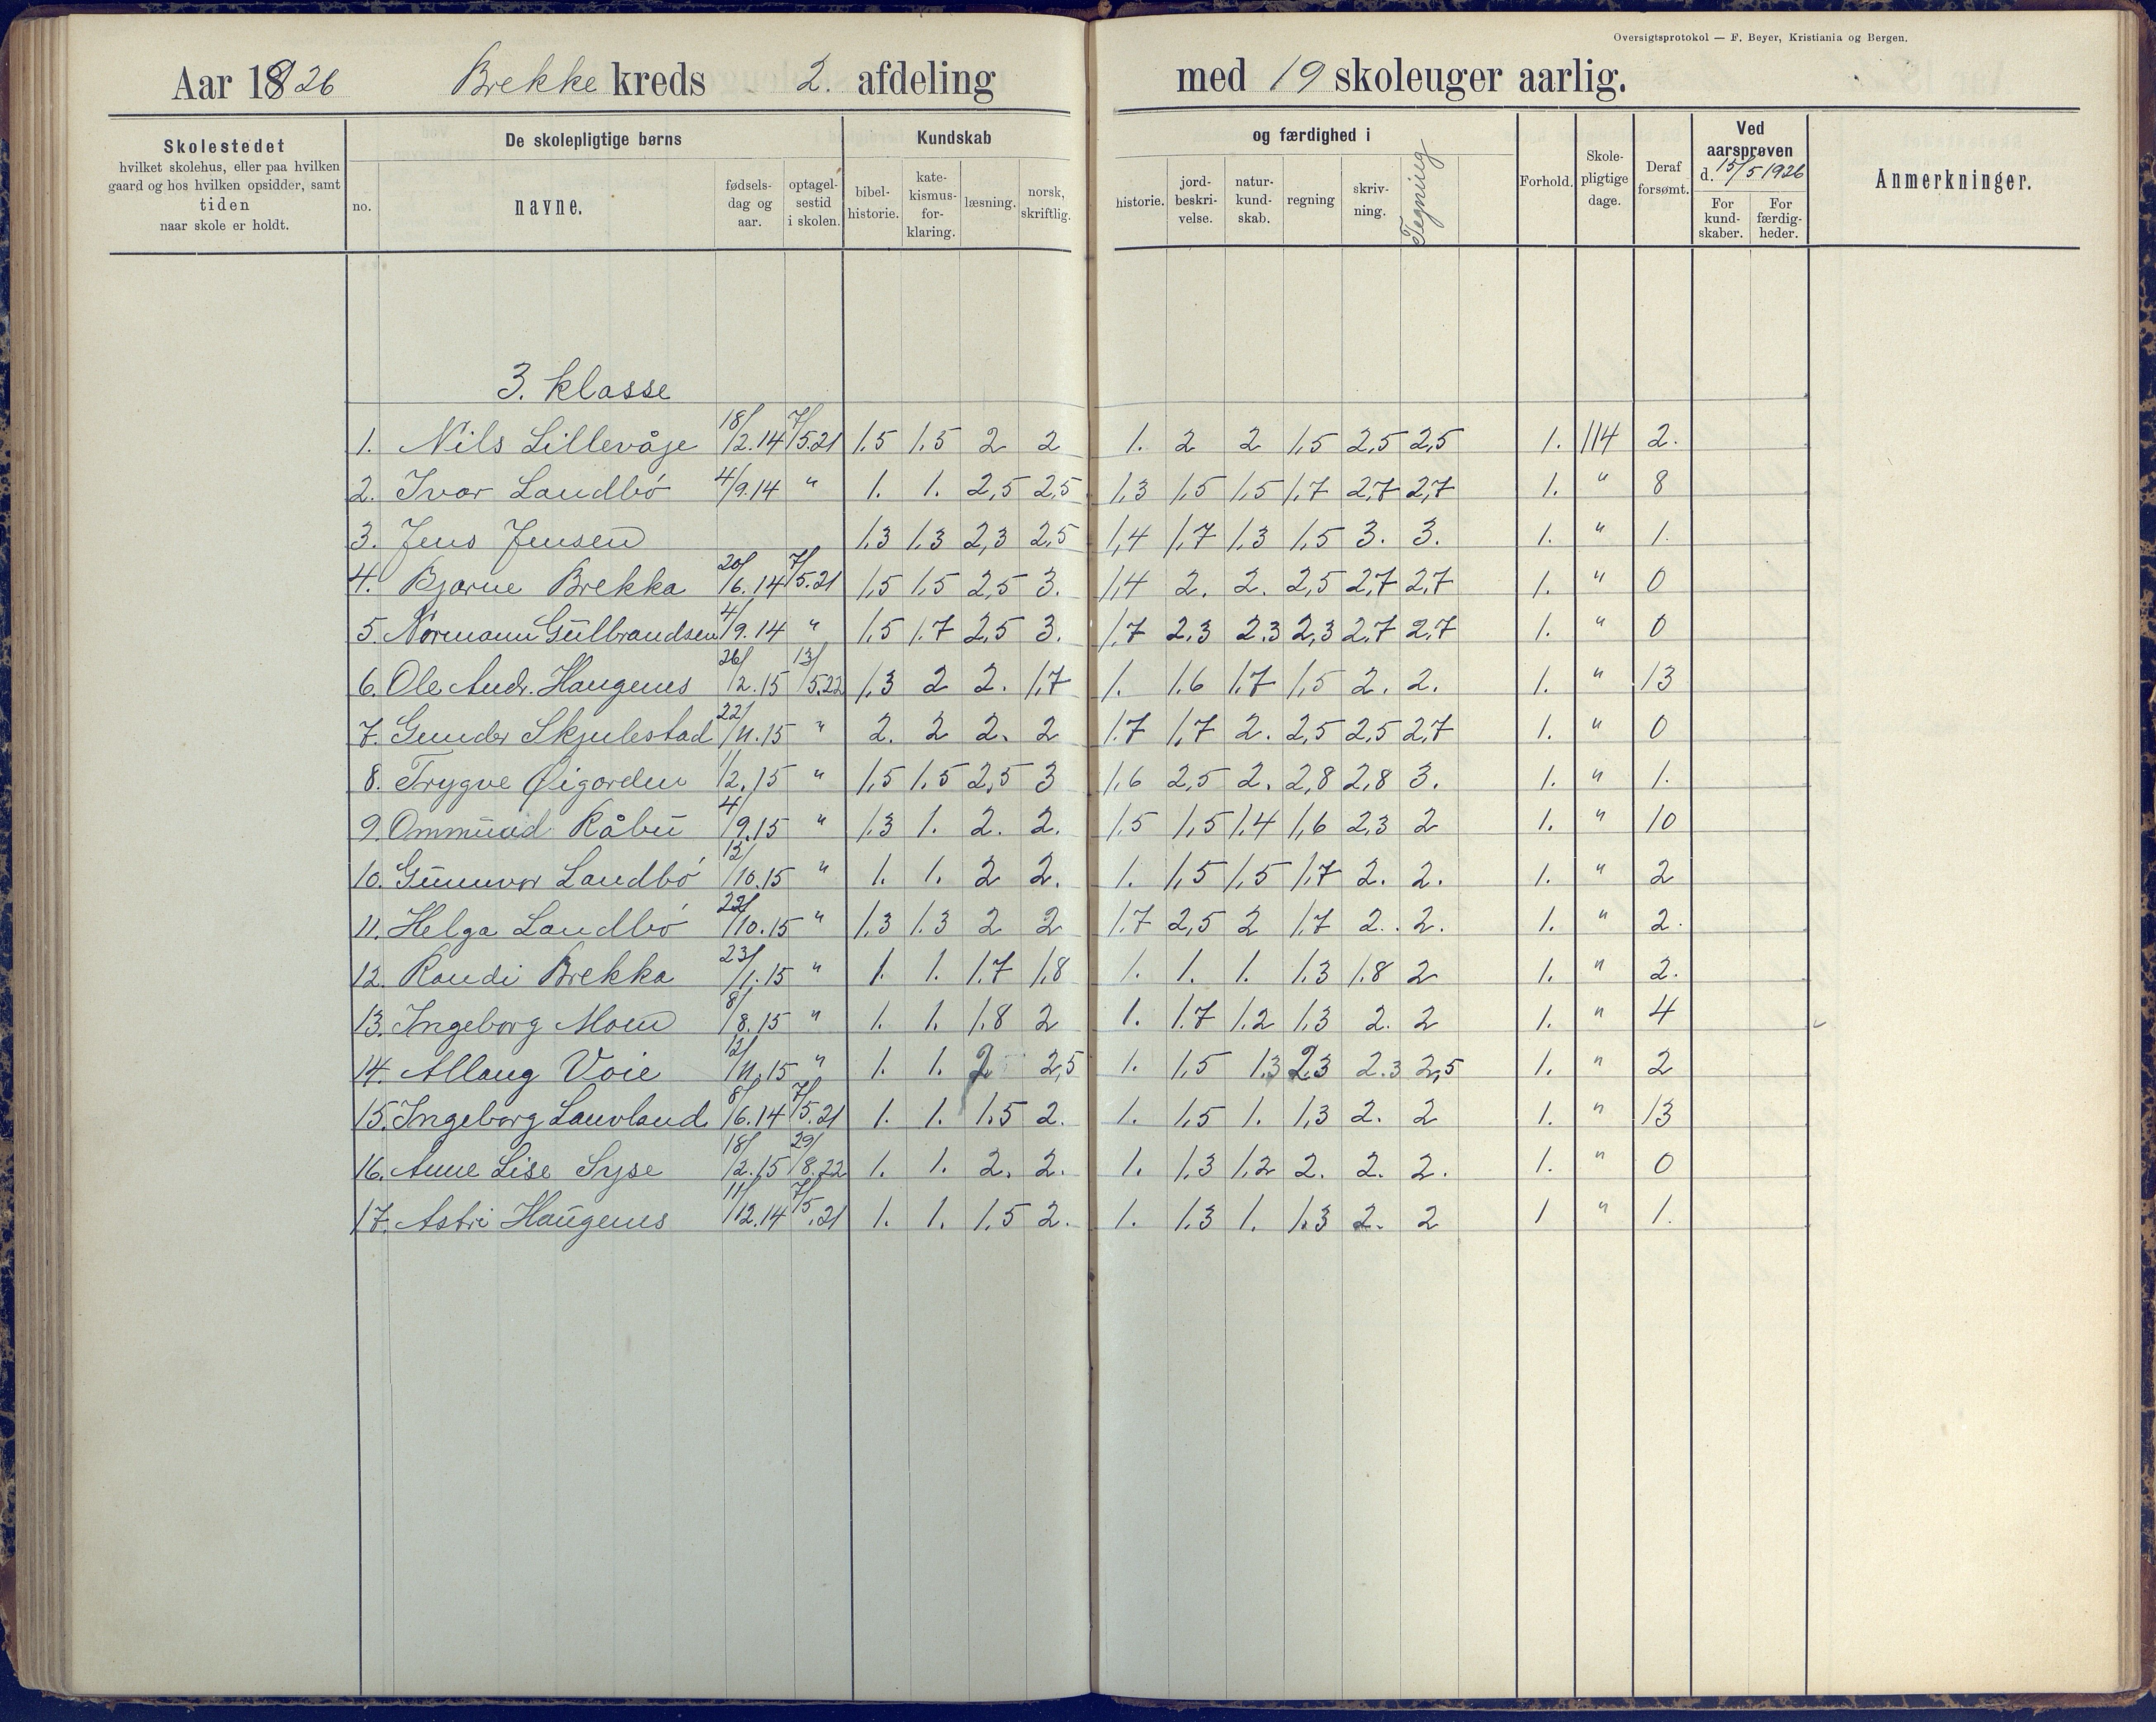 Oversigtsprotokol — F. Beyer, Kristiania og Bergen.
Aar 1926 Brekke kreds 2. afdeling med 19 skoleuger aarlig.
Skolestedet hvilket skolehus, eller paa hvilken gaard og hos hvilken opsidder, samt tiden naar skole er holdt.
De skolepligtige børns
no. navne. fødsels-dag og aar. optagel-sestid i skolen.
Kundskab og færdighed i
bibel-historie. kate-kismus-for-klaring. læsning. norsk, skriftlig. historie. jord-beskri-velse. natur-kund-skab. regning skriv-ning. Tegning
Forhold. Skole-pligtige dage. Deraf forsømt.
Ved aarsprøven d. 15/5 1926
For kund-skaber. For færdig-heder.
Anmerkninger.
3. klasse
1. Nils Lillevåje 18/2.14 7/5.21 1.5 1.5 2 2 1. 2 2 1,5 2,5 2,5 1. 114 2.
2. Ivar Landbö 4/9.14 " 1. 1. 2,5 2,5 1,3 1,5 1,5 1,7 2,7 2,7 1. " 8
3. Jens Jensen 1,3 1,3 2,3 2,5 1,4 1,7 1,3 1,5 3. 3. 1. " 1.
4. Bjarne Brekka 20/6.14 7/5.21 1,5 1,5 2,5 3. 1,4 2. 2. 2,5 2,7 2,7 1. " 0
5. Normann Gulbrandsen 4/9.14 " 1,5 1.7 2,5 3. 1,7 2.3 2.3 2,3 2,7 2,7 1. " 0
6. Ole Andr. Haugenes 26/2.15 13/5.22 1,3 2 2. 1,7 1. 1.6 1,7 1,5 2. 2. 1. " 13
7. Gunder Skjulestad 22/11.15 " 2. 2 2. 2 1.7 1,7 2. 2,5 2,5 2,7 1. " 0
8. Trygve Øigarden 1/2.15 " 1,5 1,5 2,5 3 1,6 2,5 2. 2,8 2,8 3. 1. " 1.
9. Ommund Råbu 4/9.15 " 1,3 1. 2. 2. 1,5 1,5 1,4 1,6 2,3 2 1. " 10
10. Gunnvor Landbö 12/10.15 " 1. 1. 2 2. 1. 1,5 1,5 1,7 2. 2. 1. " 2
11. Helga Landbö 22/10.15 " 1.3 1.3 2 2 1.7 2,5 2 1,7 2. 2. 1. " 2.
12. Randi Brekka 23/1.15 " 1. 1. 1.7 1,8 1. 1. 1. 1,3 1.8 2 1. " 2.
13. Ingeborg Moen 8/8.15 " 1. 1. 1.8 2 1. 1.7 1.2 1,3 2. 2 1. " 4
14. Allaug Voie 12/11.15 " 1. 1. 2 2,5 1. 1.5 1.3 2.3 2.3 2,5 1. " 2
15. Ingeborg Lauvland 8/6.14 7/5.21 1. 1. 1.5 2. 1. 1,5 1. 1,3 2. 2 1. " 13
16. Anne Lise Syse 18/2.15 29/8.22 1. 1. 2. 2. 1. 1,3 1,2 2. 2. 2. 1. " 0
17. Astri Haugenes 11/12.14 7/5.21 1. 1. 1,5 2. 1. 1.3 1. 1.3 2. 2 1 " 1.